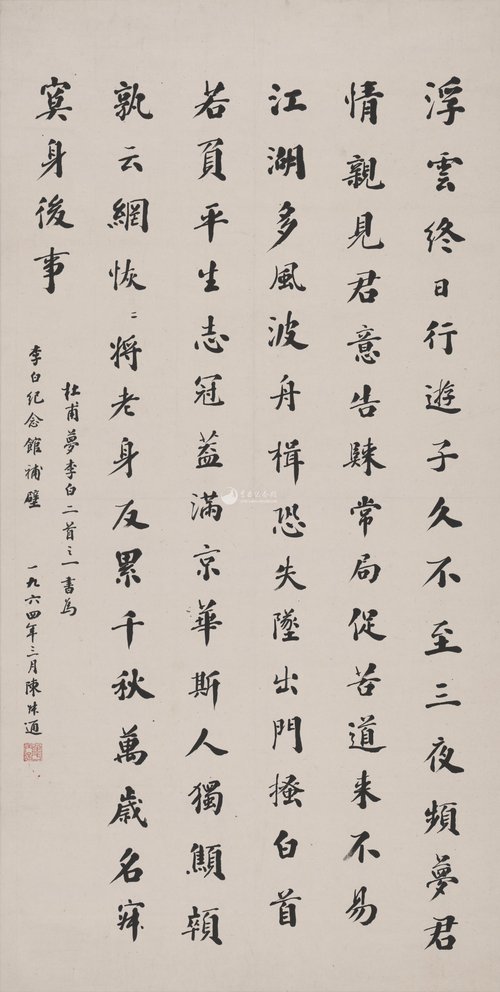 浮雲終日行遊子久不至三夜頻夢君
情親見君意告歸常局促苦道来不易
江湖多風波舟楫恐失墜出門搔白首
若負平生志冠蓋滿京華斯人獨顦顇
孰云網恢〻將老身反累千秋萬歲名寂
寞身後事
杜甫夢李白二首之一書為
李白纪念館補壁 一九六四年三月陳叔通